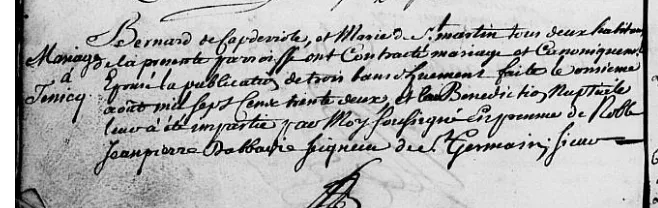 Mariage
a
Bernard de Capdeviole, et Marie de St martin tous deux habitans
de la presente parroisse ont Contracté mariage et Canoniquement
Epousé la publication de trois bans duement faite le onsieme
août mil sept cens trente deux et la Benediction Nuptiale
leur a été impartie par Moy soussigné En presence de Noble
Jeanpierre Dabbadie seigneur de St Germain, sieur